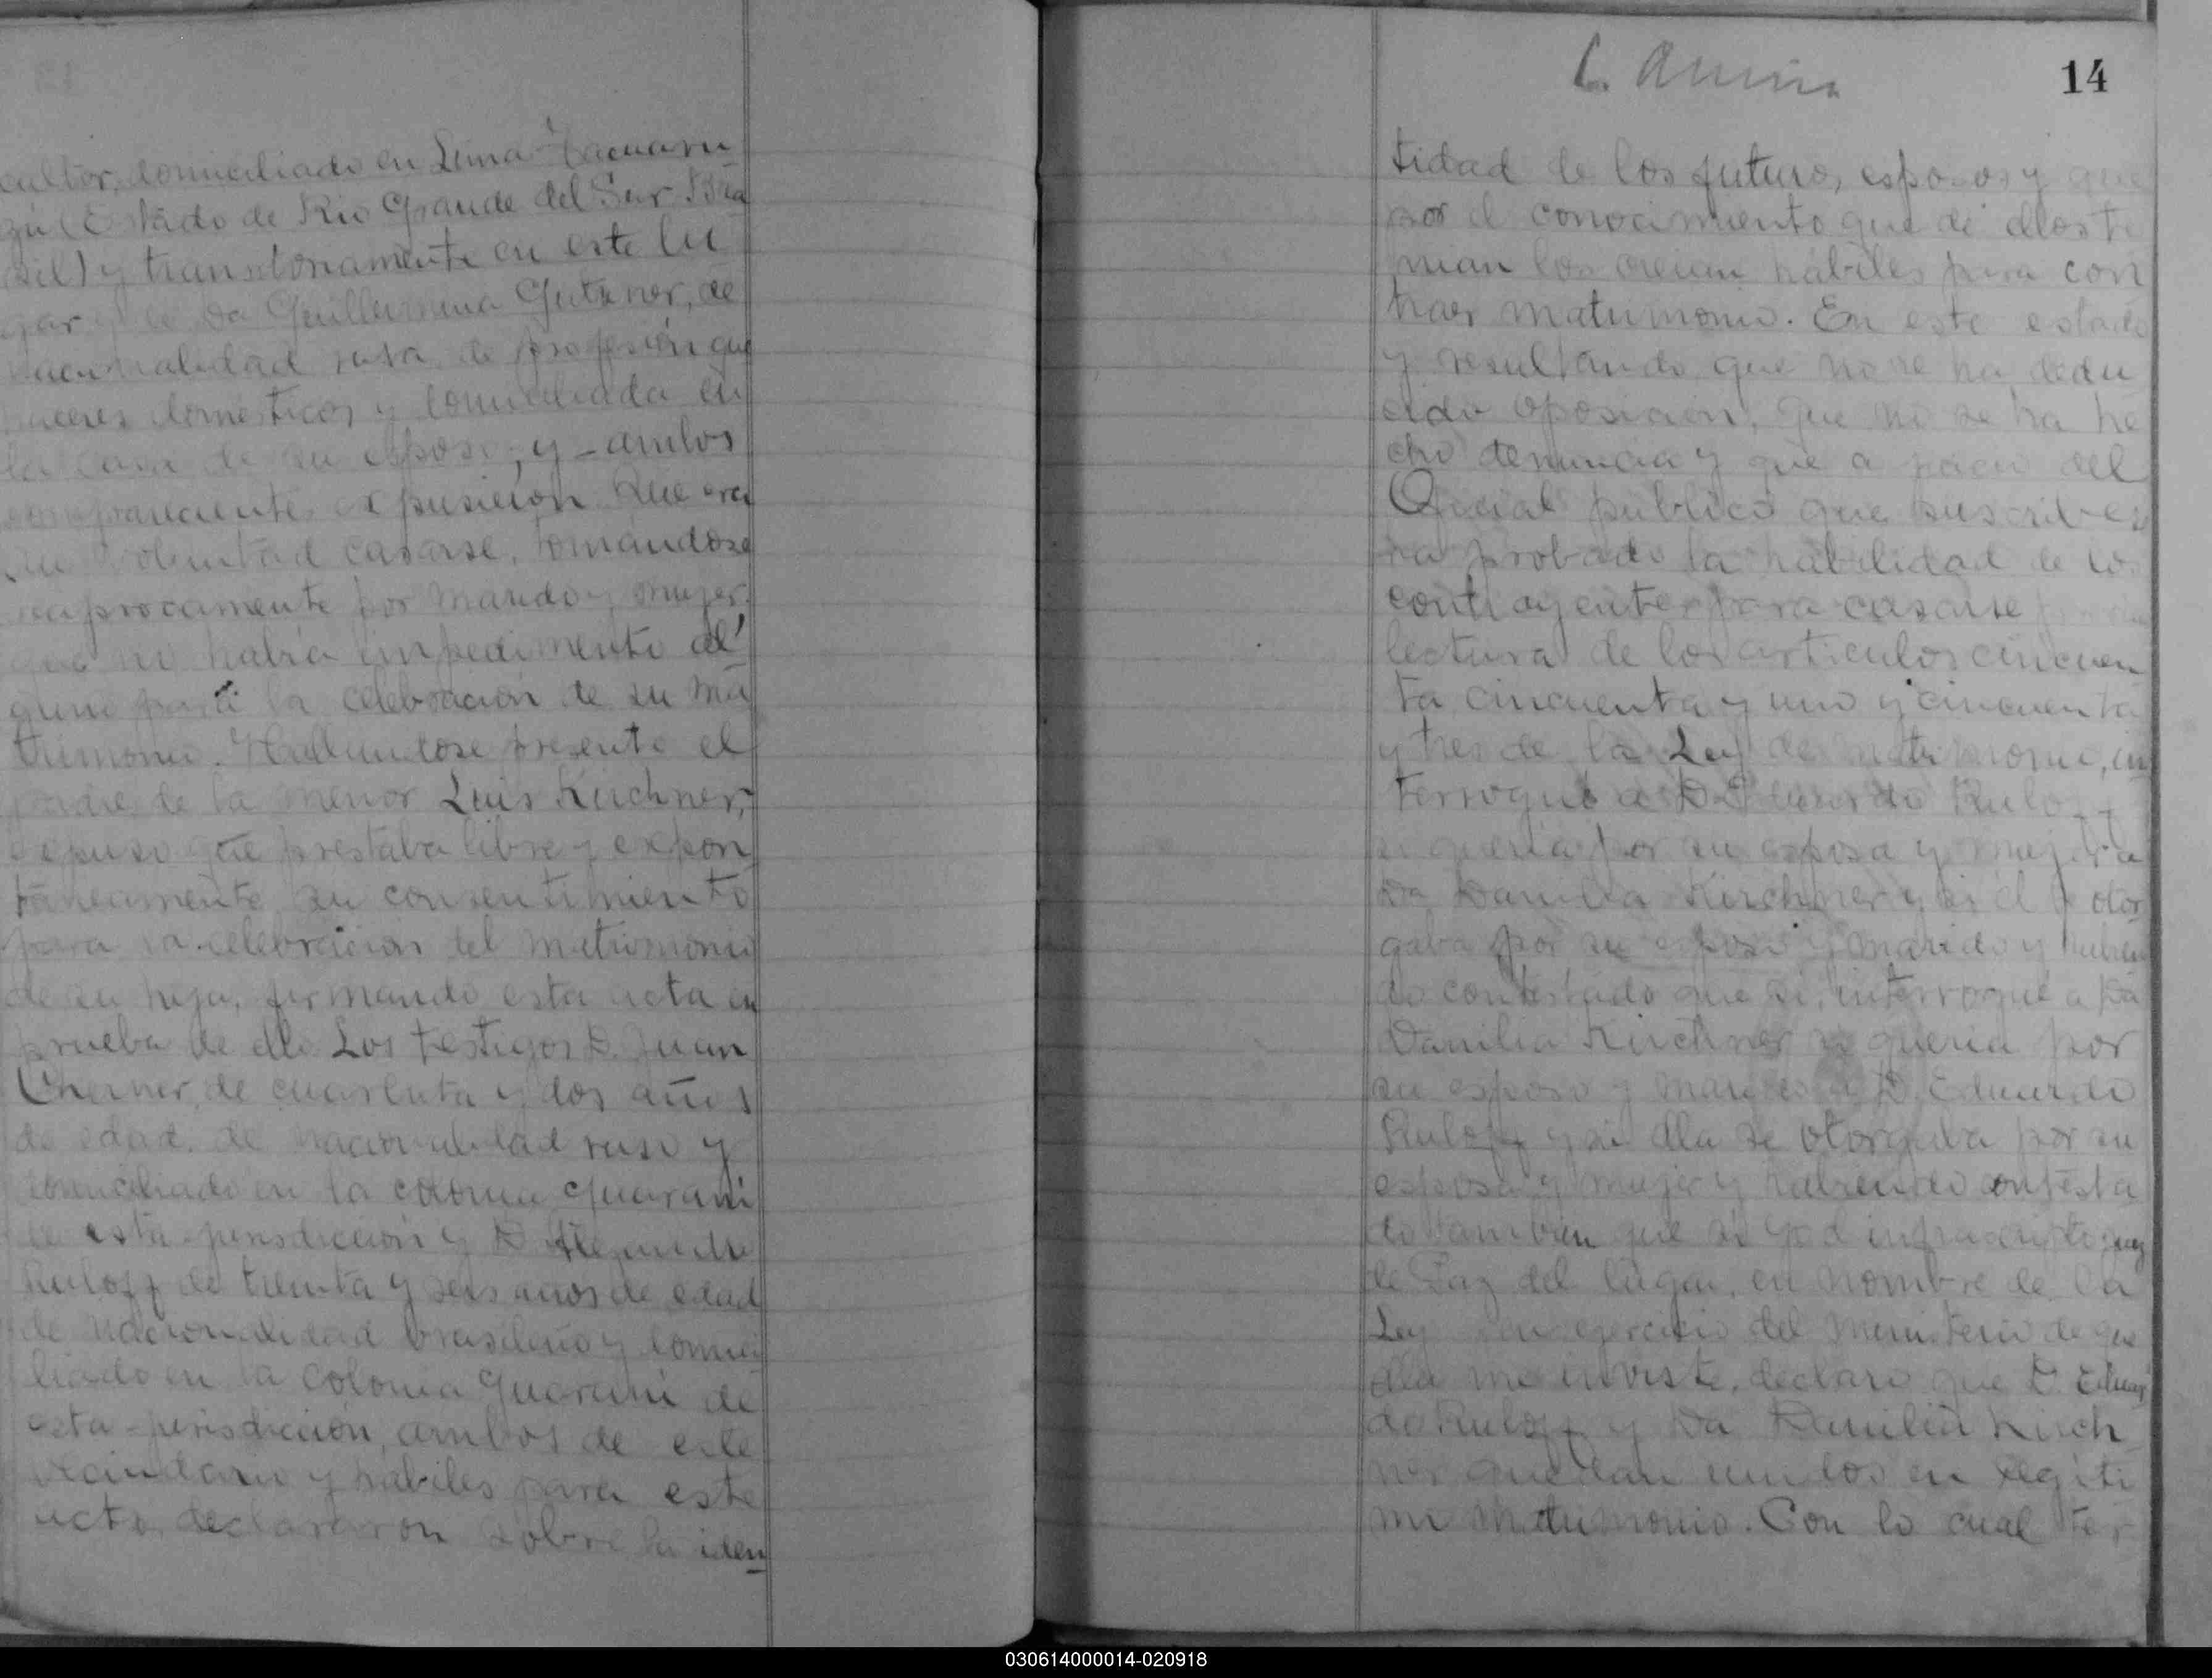 cultor, domiciliado en Linna Tacuaru
zú (Estado de Rio Grande del Sur Bra
sil) y transitoriamente en este lu
gar y de Da Guillermina Gutzner, de
nacionalidad rusa, de profesión que
haceres domésticos y domiciliada en
la casa de su esposo; y ambos
comparecientes expusieron: Que era
su voluntad casarse, tomándose
reciprocamente por marido y mujer,
que no había impedimento al
guno para la celebración de su ma
trimonio. Hallándose presente el
padre de la menor Luis Kirchner,
expuso que prestaba libre y expon
táneamente su consentimiento
para la celebración del matrimonio
de su hija, firmando esta acta en
prueba de ello. Los testigos D. Juan
Cherner, de cuarenta y dos años
de edad, de nacionalidad ruso y
domiciliado en la colonia Guaraní
de esta jurisdicción y D.
Ruloff de treinta y seis años de edad
de nacionalidad brasileño y domici
liado en la Colonia Guaraní de
esta jurisdicción, ambos de este
vecindario y hábiles para este
acto, declararon sobre la iden
14
tidad de los futuros esposos y que
por el conocimiento que de ellos te
nian los creian hábiles para con
traer matrimonio. En este estado
y resultando que no se ha dedu
cido oposición, que no se ha he
cho denuncia y que a juicio del
Oficial público que suscribe se
ha probado la habilidad de los
contrayentes para casarse
lectura de los artículos cincuen
ta cincuenta y uno y cincuenta
y tres de la Ley de matrimonio, in
terrogué a D. Eduardo Ruloff
si queria por su esposa y mujer a
Da Danilia Kirchner y si él se otor
gaba por su esposo y marido y habien
do contestado que si, interrogué a Da
Danilia Kirchner si queria por
su esposo y marido a D. Eduardo
Ruloff y si ella se otorgaba por su
esposa y mujer y habiendo contesta
do tambien que si yo el infrascripto Juez
de Paz del lugar, en nombre de la
Ley en ejercicio del ministerio de que
ella me inviste, declaro que D. Eduar
do Ruloff y Da Danilia Kirch
ner quedan unidos en legiti
mo matrimonio. Con lo cual ter
030614000014-020918